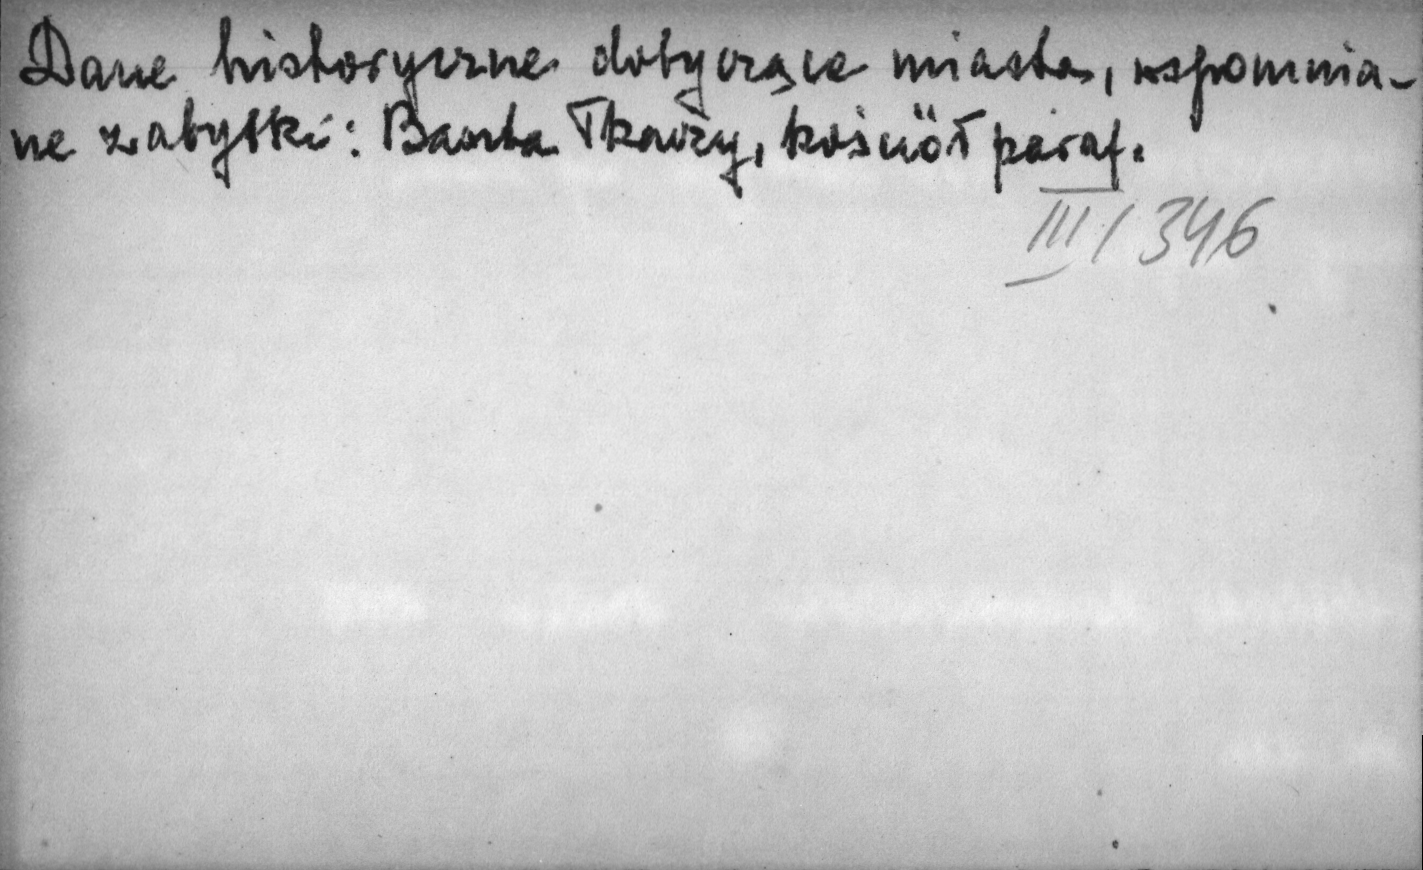 Dane historyczne dotyczące miasta, wspomnia-
ne zabytki: Baszta Tkaczy, kościół paraf.
III/346